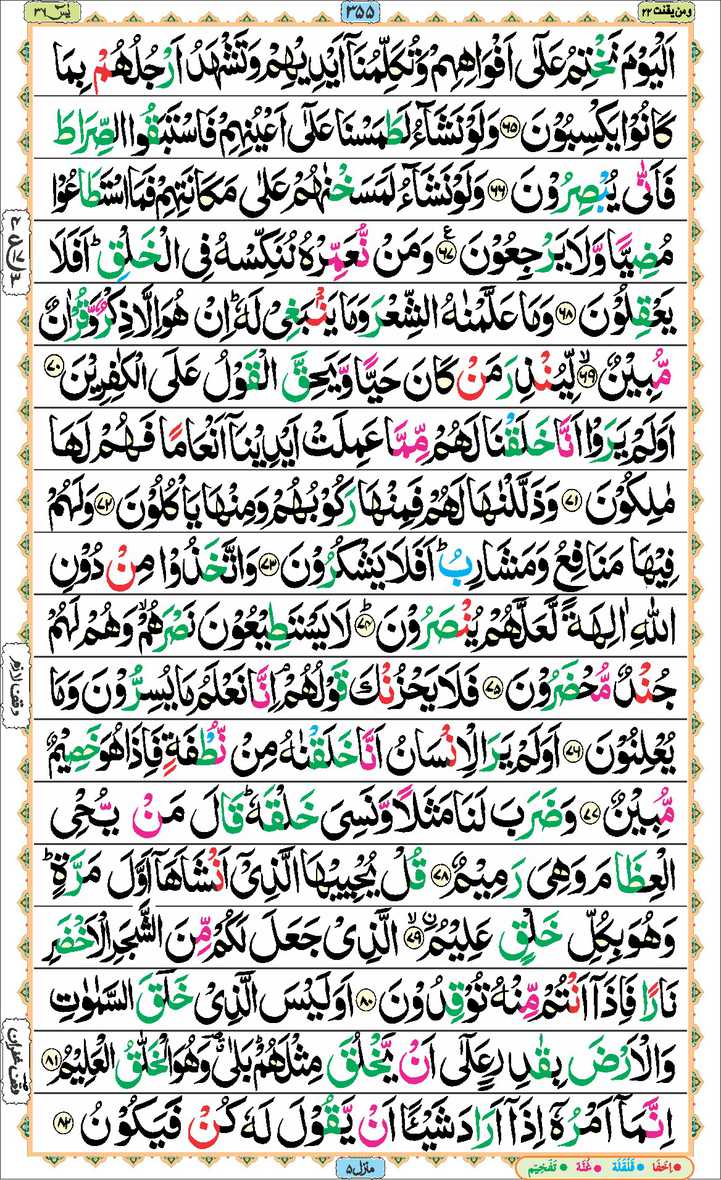 ومن يقنت ٢٢
٣٥٥
يٰسٓ ٣٦
اَلْيَوْمَ نَخْتِمُ عَلٰٓى اَفْوَاهِهِمْ وَتُكَلِّمُنَاۤ اَيْدِيْهِمْ وَتَشْهَدُ اَرْجُلُهُمْ بِمَا
كَانُوْا يَكْسِبُوْنَ ﴿۶۵﴾ وَلَوْ نَشَآءُ لَطَمَسْنَا عَلٰٓى اَعْيُنِهِمْ فَاسْتَبَقُوا الصِّرَاطَ
فَاَنّٰى يُبْصِرُوْنَ ﴿۶۶﴾ وَلَوْ نَشَآءُ لَمَسَخْنٰهُمْ عَلٰى مَكَانَتِهِمْ فَمَا اسْتَطَاعُوْا
مُضِيًّا وَّلَا يَرْجِعُوْنَ ﴿۶۷﴾ ع وَمَنْ نُّعَمِّرْهُ نُنَكِّسْهُ فِى الْخَلْقِ ؕ اَفَلَا
يَعْقِلُوْنَ ﴿۶۸﴾ وَمَا عَلَّمْنٰهُ الشِّعْرَ وَمَا يَنْۢبَغِىْ لَهٗ ؕ اِنْ هُوَ اِلَّا ذِكْرٌ وَّقُرْاٰنٌ
مُّبِيْنٌ ﴿۶۹﴾ ۙ لِّيُنْذِرَ مَنْ كَانَ حَيًّا وَّيَحِقَّ الْقَوْلُ عَلَى الْكٰفِرِيْنَ ﴿۷۰﴾
اَوَلَمْ يَرَوْا اَنَّا خَلَقْنَا لَهُمْ مِّمَّا عَمِلَتْ اَيْدِيْنَاۤ اَنْعَامًا فَهُمْ لَهَا
مٰلِكُوْنَ ﴿۷۱﴾ وَذَلَّلْنٰهَا لَهُمْ فَمِنْهَا رَكُوْبُهُمْ وَمِنْهَا يَاْكُلُوْنَ ﴿۷۲﴾ وَلَهُمْ
فِيْهَا مَنَافِعُ وَمَشَارِبُ ؕ اَفَلَا يَشْكُرُوْنَ ﴿۷۳﴾ وَاتَّخَذُوْا مِنْ دُوْنِ
اللّٰهِ اٰلِهَةً لَّعَلَّهُمْ يُنْصَرُوْنَ ﴿۷۴﴾ ؕ لَا يَسْتَطِيْعُوْنَ نَصْرَهُمْ ۙ وَهُمْ لَهُمْ
جُنْدٌ مُّحْضَرُوْنَ ﴿۷۵﴾ فَلَا يَحْزُنْكَ قَوْلُهُمْ ۘ اِنَّا نَعْلَمُ مَا يُسِرُّوْنَ وَمَا
يُعْلِنُوْنَ ﴿۷۶﴾ اَوَلَمْ يَرَ الْاِنْسَانُ اَنَّا خَلَقْنٰهُ مِنْ نُّطْفَةٍ فَاِذَا هُوَ خَصِيْمٌ
مُّبِيْنٌ ﴿۷۷﴾ وَضَرَبَ لَنَا مَثَلًا وَّنَسِىَ خَلْقَهٗ ؕ قَالَ مَنْ يُّحْىِ
الْعِظَامَ وَهِىَ رَمِيْمٌ ﴿۷۸﴾ قُلْ يُحْيِيْهَا الَّذِىْۤ اَنْشَاَهَاۤ اَوَّلَ مَرَّةٍ ؕ
وَهُوَ بِكُلِّ خَلْقٍ عَلِيْمٌ ﴿۷۹﴾ ۙ الَّذِىْ جَعَلَ لَكُمْ مِّنَ الشَّجَرِ الْاَخْضَرِ
نَارًا فَاِذَاۤ اَنْتُمْ مِّنْهُ تُوْقِدُوْنَ ﴿۸۰﴾ اَوَلَيْسَ الَّذِىْ خَلَقَ السَّمٰوٰتِ
وَالْاَرْضَ بِقٰدِرٍ عَلٰٓى اَنْ يَّخْلُقَ مِثْلَهُمْ ؕ بَلٰى ۗ وَهُوَ الْخَلّٰقُ الْعَلِيْمُ ﴿۸۱﴾
اِنَّمَاۤ اَمْرُهٗۤ اِذَاۤ اَرَادَ شَيْـًٔا اَنْ يَّقُوْلَ لَهٗ كُنْ فَيَكُوْنُ ﴿۸۲﴾
وقف لازم
وقف غفران
منزل ۵
اِخفَا • قَلقَلَة • غُنَّة • تَفخِيم •